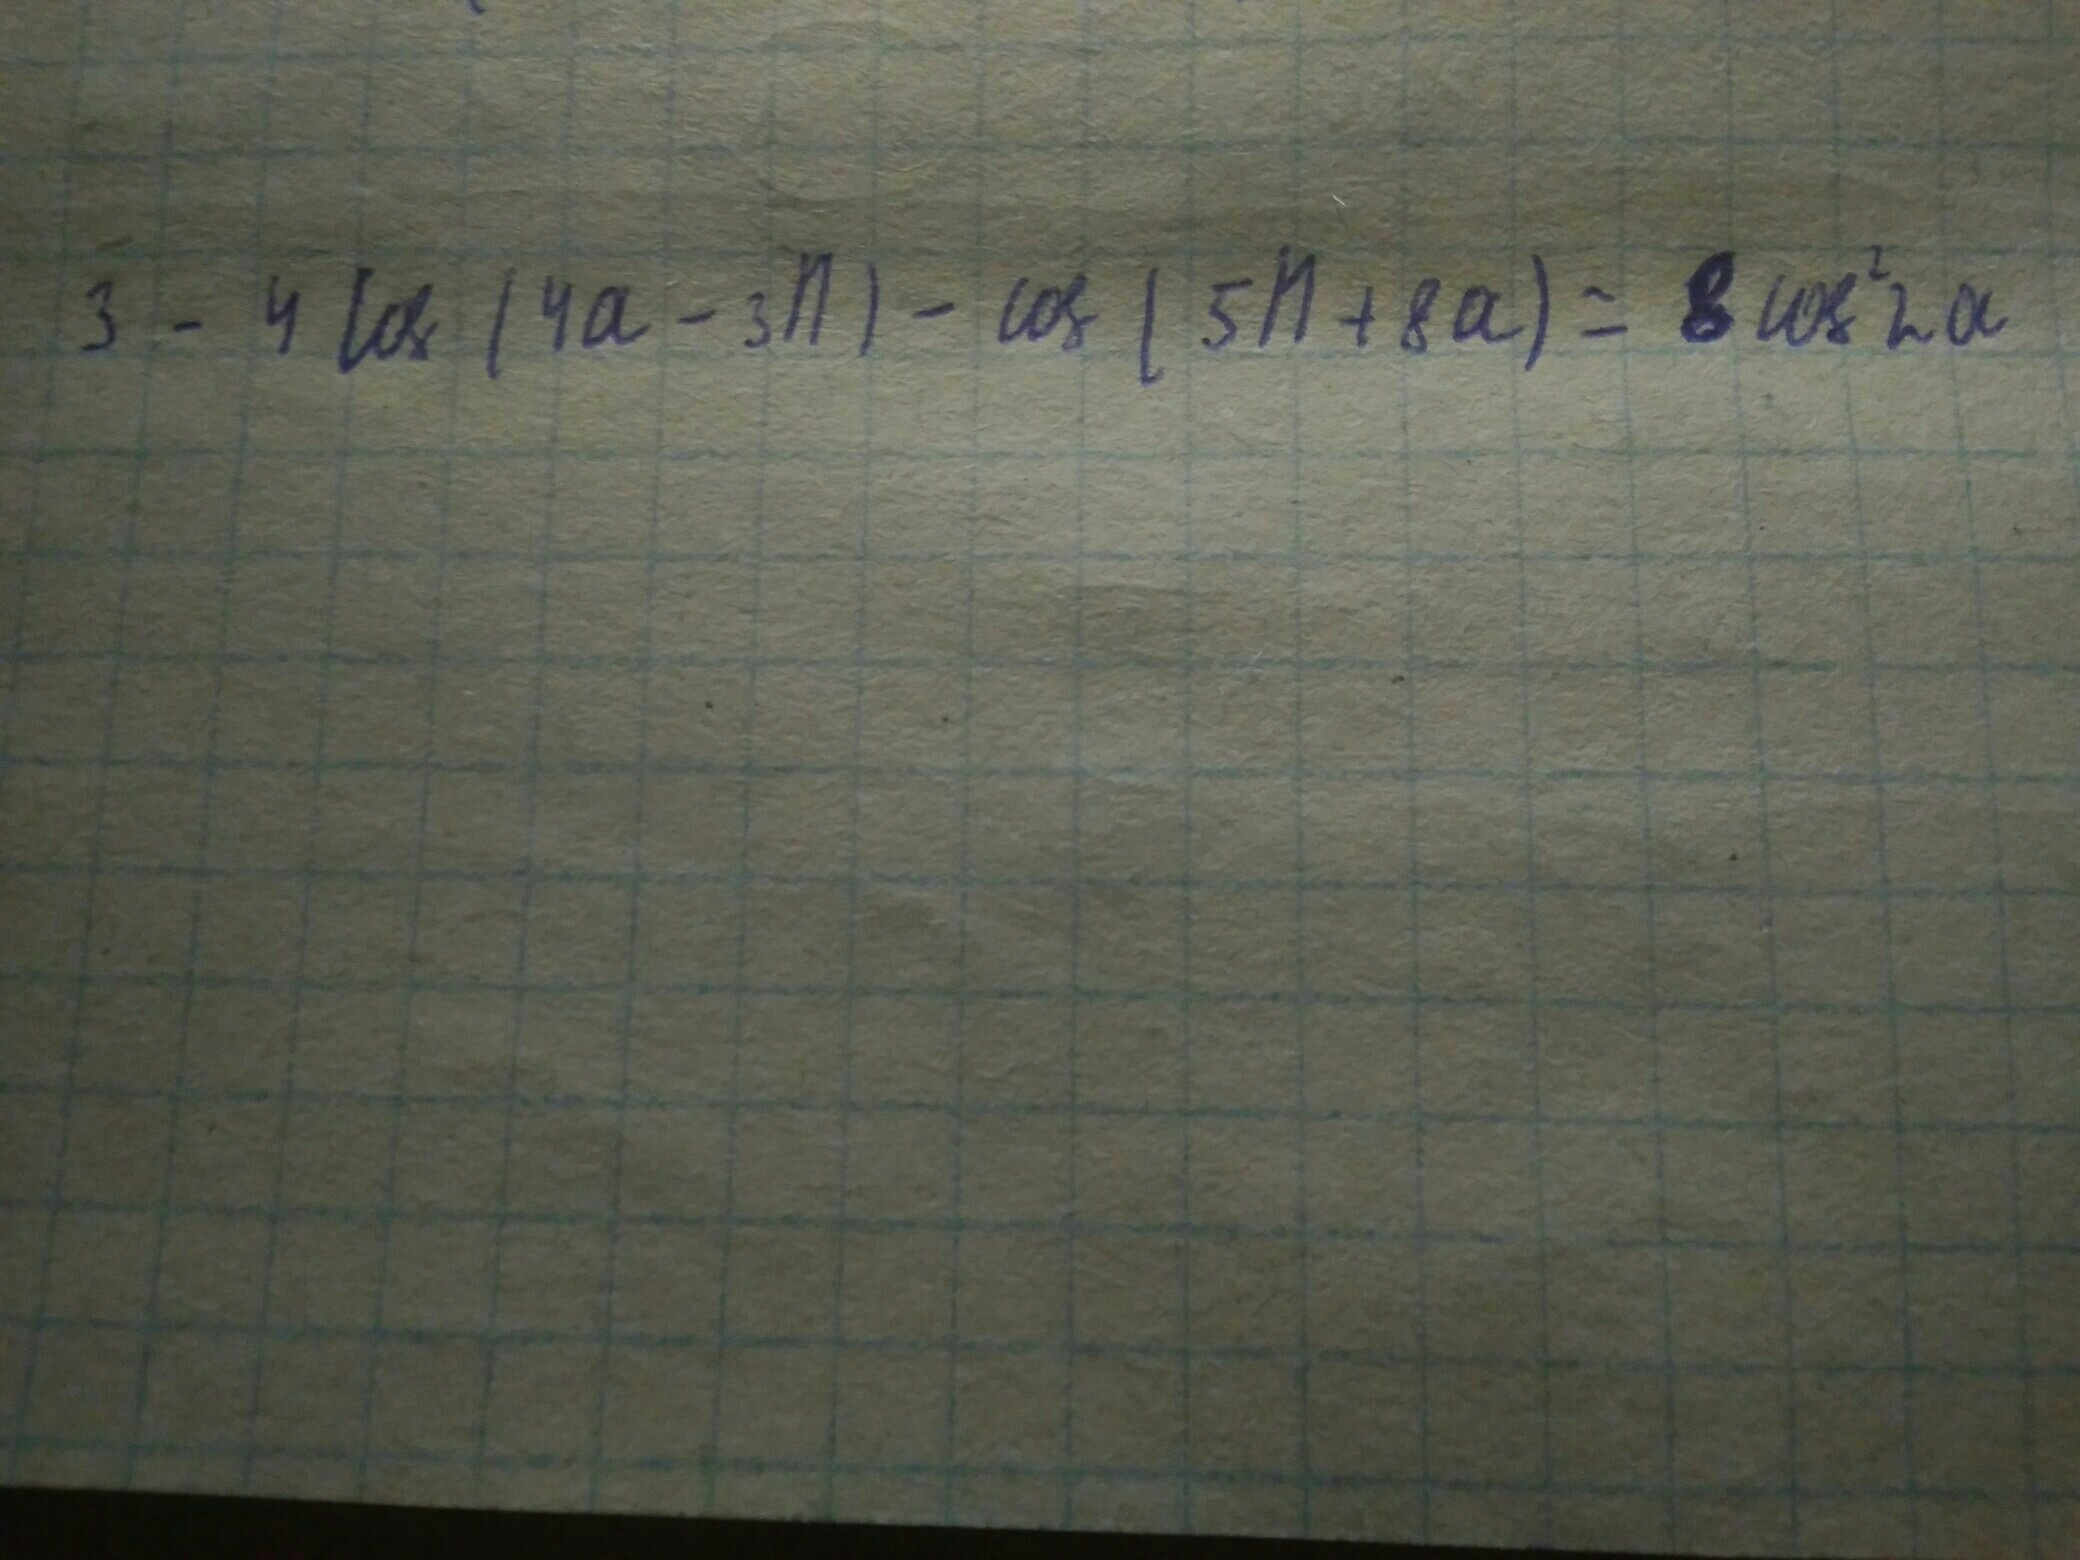 3 - 4 cos (4a - 3π) - cos (5π + 8a) = 8 cos² 2a